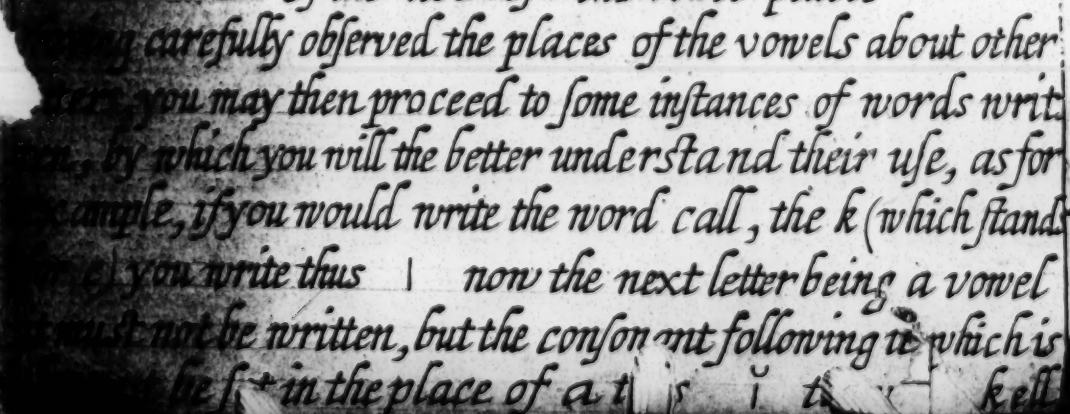 carefully obſerved the places of the vowels about other
you may then proceed to ſome inſtances of words writ
by which you will the better underſtand their uſe, as for
example, if you would write the word call, the k (which ſtands
you write thus now the next letter being a vowel
must not be written, but the conſonant following it which is
be ſet in the place of a